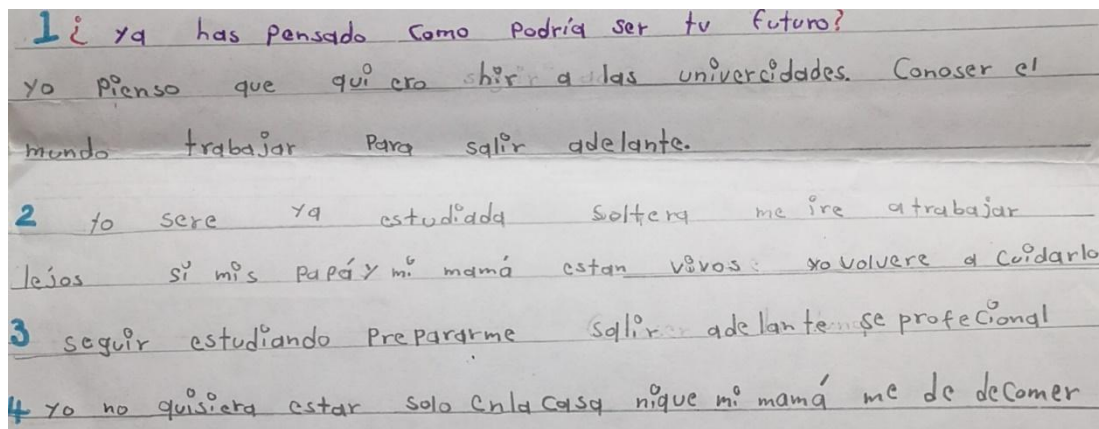 1 ¿ ya has pensado como podría ser tu futuro?
yo pienso que qui ero a las univercidades. Conoser el
mundo trabajar para salir adelante.
2 yo sere ya estudiada soltera me ire a trabajar
lejos si mis papá y mi mamá estan vivos. yo volvere a cuidarlo
3 seguir estudiando prepararme salir adelante se profecional
4 yo no quisiera estar solo enla casa nique mi mamá me de decomer